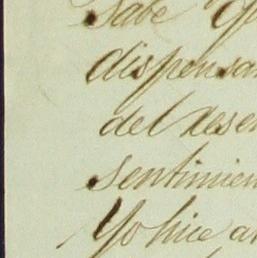 sabe
dispensar
del deseo
sentimien
Yo hice a